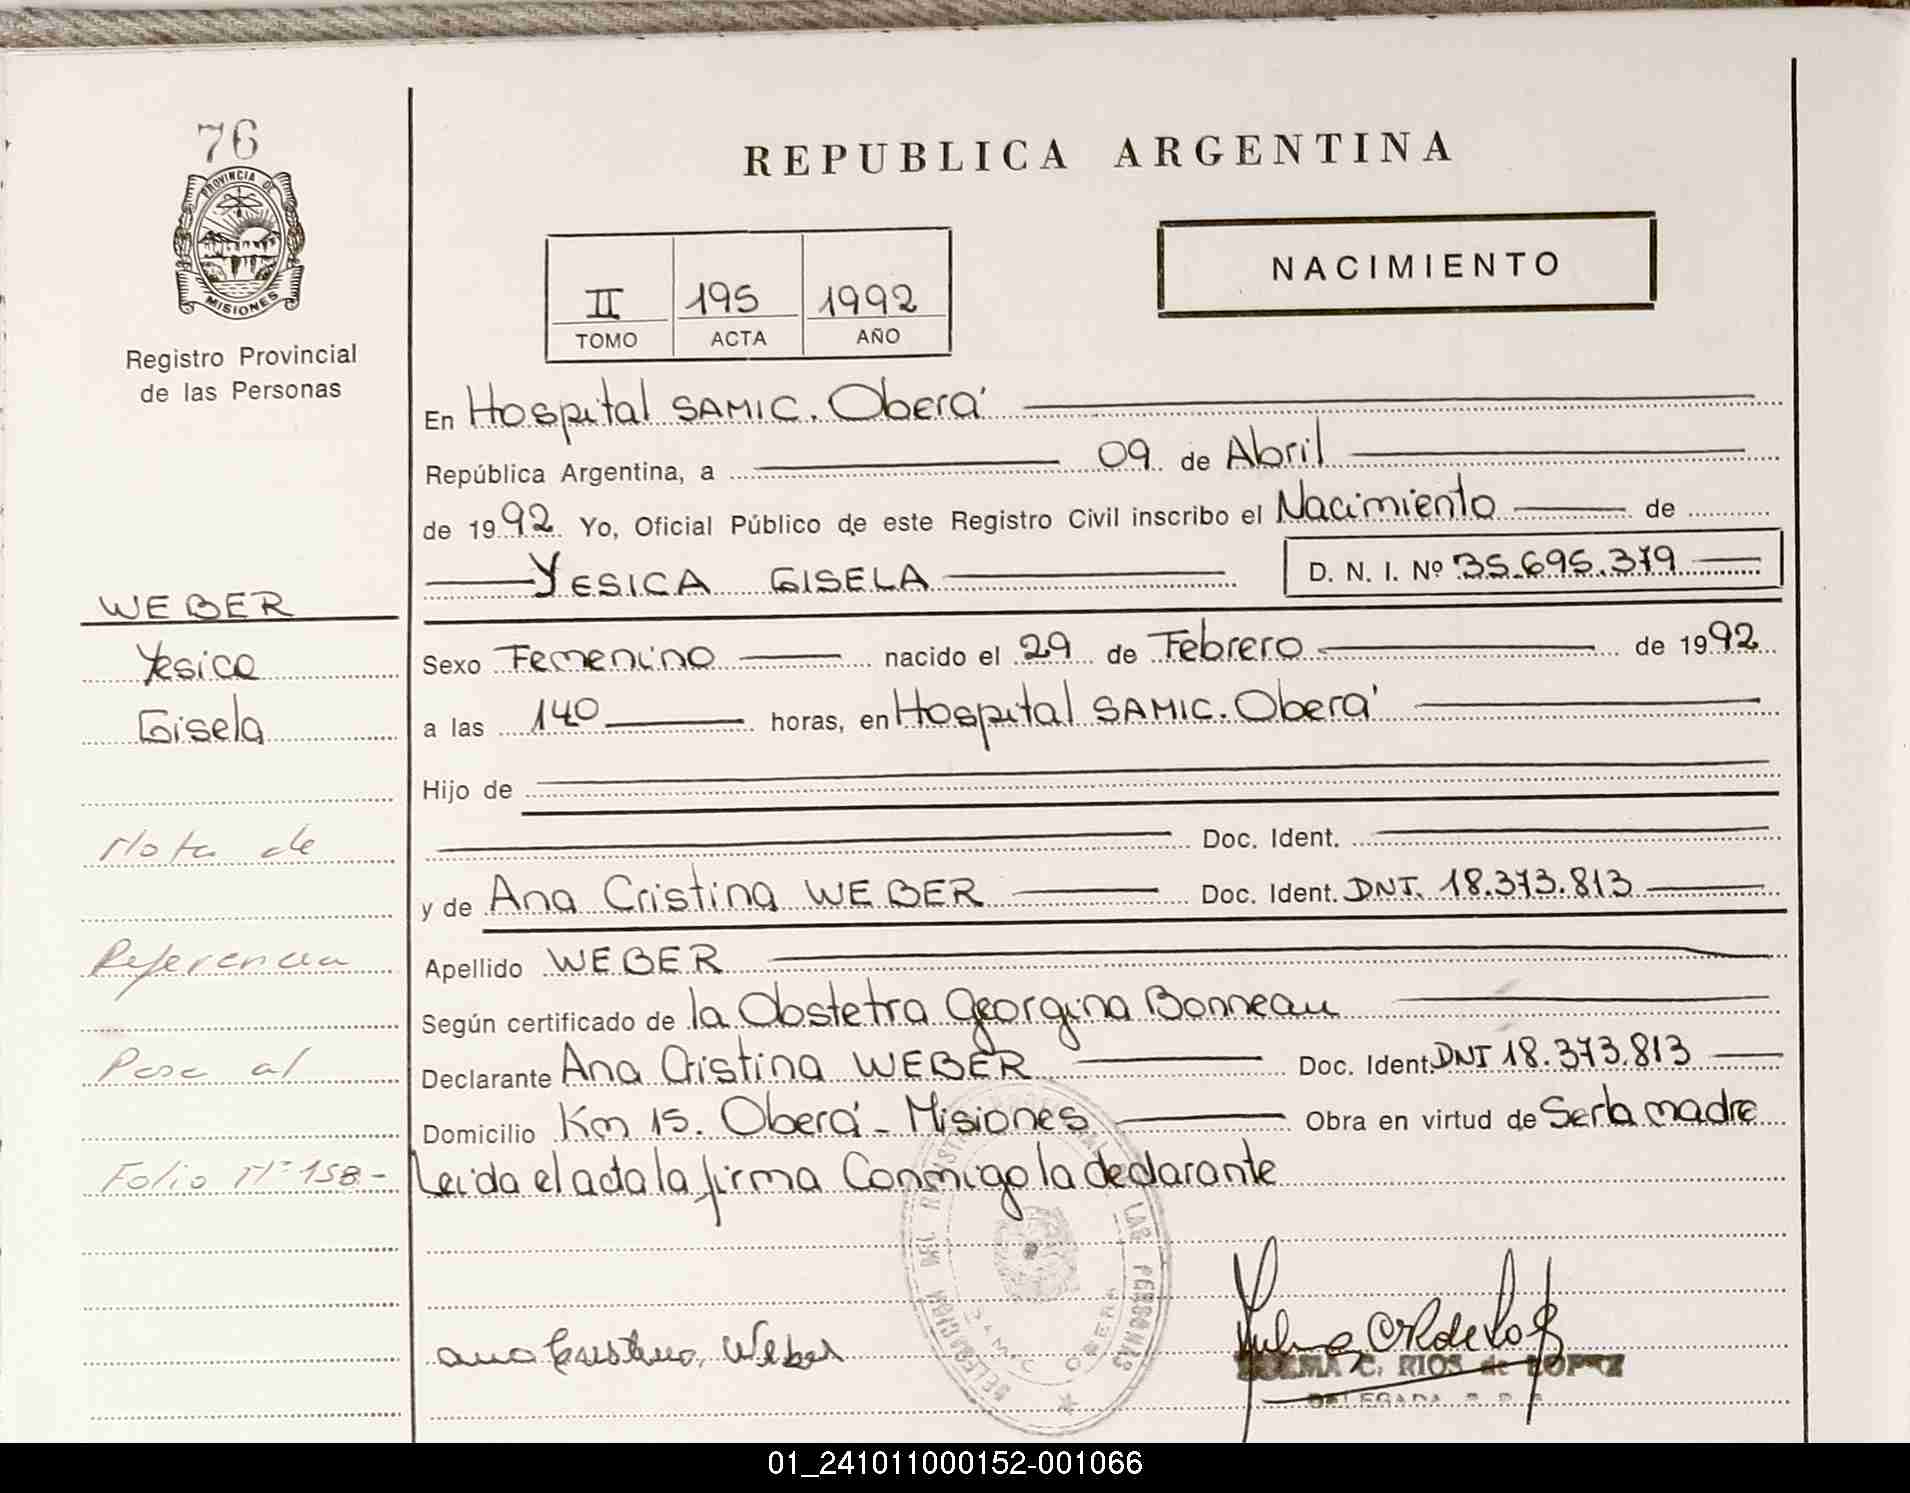 76
PROVINCIA DE
MISIONES
Registro Provincial
de las Personas
REPUBLICA ARGENTINA
NACIMIENTO
II 195 1992
TOMO ACTA AÑO
En Hospital SAMIC. Oberá
República Argentina, a 09 de Abril
de 1992 Yo, Oficial Público de este Registro Civil inscribo el Nacimiento de
YESICA GISELA D. N. I. Nº 35.695.379
WEBER
Yesica
Gisela
Sexo Femenino nacido el 29 de Febrero de 1992
a las 140 horas, en Hospital SAMIC. Oberá
Hijo de
Doc. Ident.
y de Ana Cristina WEBER Doc. Ident. DNI. 18.373.813
Apellido WEBER
Según certificado de la Obstetra Georgina Bonneau
Declarante Ana Cristina WEBER Doc. Ident. DNI 18.373.813
Domicilio Km 15. Oberá - Misiones Obra en virtud de Ser la madre
Leida el acta la firma Conmigo la declarante
Nota de
Referencia
Pasa al
Folio Nº 158-
DELEGACION DEL LAS PERSONAS
SAMIC OBERA
Ana Cristina Weber
C. RIOS de LOPEZ
DELEGADA
01_241011000152-001066